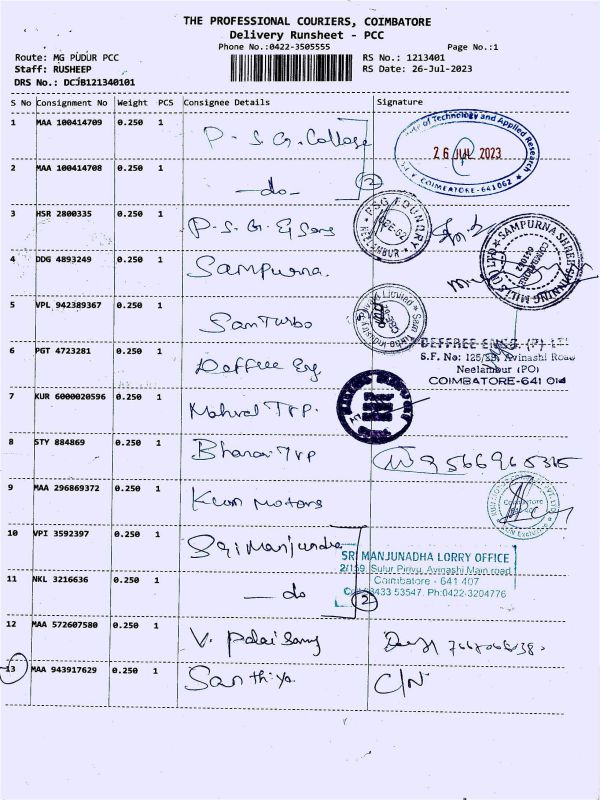 THE PROFESSIONAL COURIERS, COIMBATORE
Delivery Runsheet - PCC
Phone No.:0422-3505555 Page No.:1
Route: MG PUDUR PCC RS No.: 1213401
Staff: RUSHEEP RS Date: 26-Jul-2023
DRS No.: DCJB121340101
S No Consignment No Weight PCS Consignee Details Signature
1 MAA 100414709 0.250 1 P.S.G. College
of Technology and Applied Research
26 JUL 2023
COIMBATORE-641062
2 MAA 100414708 0.250 1 —do— 2
3 HSR 2800335 0.250 1 P.S.G.
PSG FOUNDRY
NEELAMBUR
4 DDG 4893249 0.250 1 Sampurna.
SAMPURNA SHREE SPINNING MILLS
COIMBATORE
641062
5 VPL 942389367 0.250 1 Sam Turbo
Sam Turbo Industry Private Limited
6 PGT 4723281 0.250 1 Deffree Eng.
DEFFREE ENGG. (P) LTD
S.F. No: 125/ Avinashi Road
Neelambur (PO)
COIMBATORE-641 014
7 KUR 6000020596 0.250 1
8 STY 884869 0.250 1 9566965315
9 MAA 296869372 0.250 1 Motors
Coimbatore
10 VPI 3592397 0.250 1 Sri Manjundha
SRI MANJUNADHA LORRY OFFICE
2/159, Sulur Pirivu, Avinashi Main road
Coimbatore - 641 407
53547. Ph:0422-3204776
11 NKL 3216636 0.250 1 —do 2
12 MAA 572607580 0.250 1 V. Palaisamy
13 MAA 943917629 0.250 1 Santhiya C/N